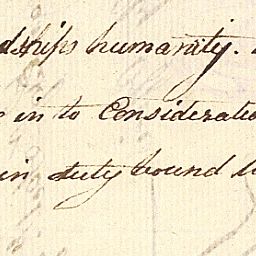 dships humanity.
in to Consideratio
in duty bound